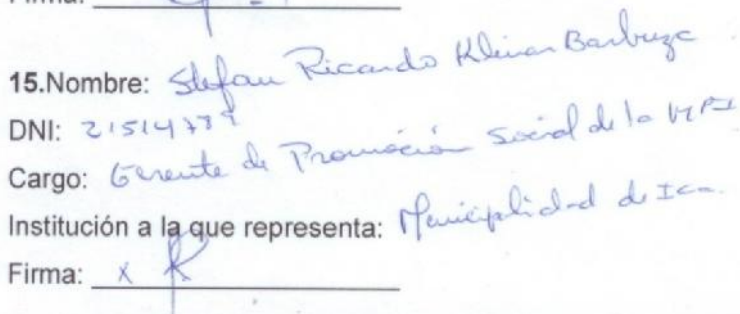 Firma:
15.Nombre: Stefan Ricardo Kleiman Barbuza
DNI: 21514789
Cargo: Gerente de Promoción Social de la MPI
Institución a la que representa: Municipalidad de Ica.
Firma: x